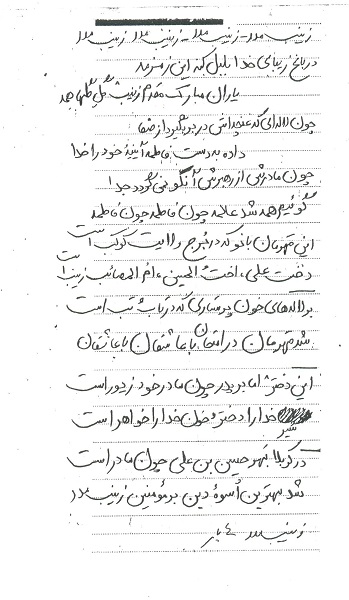 زینب مدد - زینب مدد - زینب مدد زینب مدد
در باغ زیبای خدا بلبل کند این زمزمه
یاران مبارک مقدم زینب گل گلها همه
چون لاله‌ای که غنچه‌اش در بر بگیرد از صفا
داده به دست فاطمه آیینهٔ خود را خدا
چون مادرش از رهبرش آنگونه نی گردد جدا
گوئیم همه شد عالمه چون فاطمه چون فاطمه
این قهرمان بانو که در برج ولایت کوکب است
دخت علی، اخت الحسین، ام المصائب زینب است
بر لاله‌های خون پرستاری که در تاب و تب است
شد قهرمان در امتحان با عاشقان با عاشقان
این دختر اما بر پدر چون مادر خود زیور است
شیر خدا را دختر و خون خدا را خواهر است
در کربلا بهر حسین بن علی چون مادر است
شد بهترین اسوهٔ دین بر مؤمنین زینب مدد
زینب مدد ۴ بار